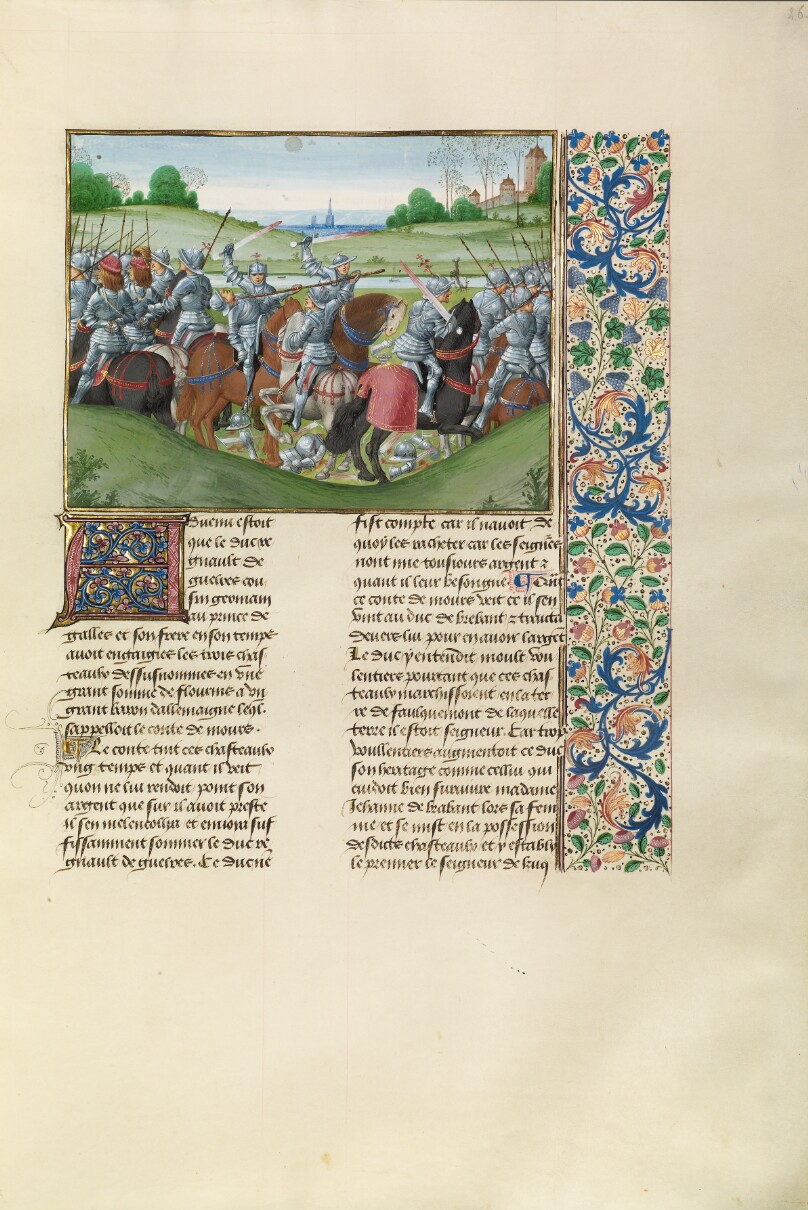 Advenu estoit
que le duc re
gnault de
guelres cou
sin germain
au prince de
galles et son frere en son temps
avoit engaigies les trois chas
teaulx dessusnommes en une
grant somme de flourins a un
grant baron dallemaigne leql.
sappelloit le conte de moures.
Le conte tint ces chasteaulx
ung temps et quant il veit
quon ne lui rendoit point son
argent que sur il avoit preste
il sen melencollia et envoia suf
fissamment sommer le duc re
gnault de guelres. Ce duc ne
fist compte car il navoit de
quoy les racheter car les seigñes
nont mie tousiours argent &
quant il leur besongne. Quãt
ce conte de moures veit ce il sen
vint au duc de brebant & traita
devers lui pour en avoir largẽt
Le duc y entendit moult vou
lentiers pourtant que ces chas
teaulx marchissoient en la ter
re de faulquemont de laquelle
terre il estoit seigneur. Car trop
voullentiers augmentoit ce duc
son heritage comme cellui qui
cuidoit bien survivre madame
Jehanne de brabant lors sa fem
me et se mist en la possession
desdicts chasteaulx et y establi
le premier le seigneur de kuq
26